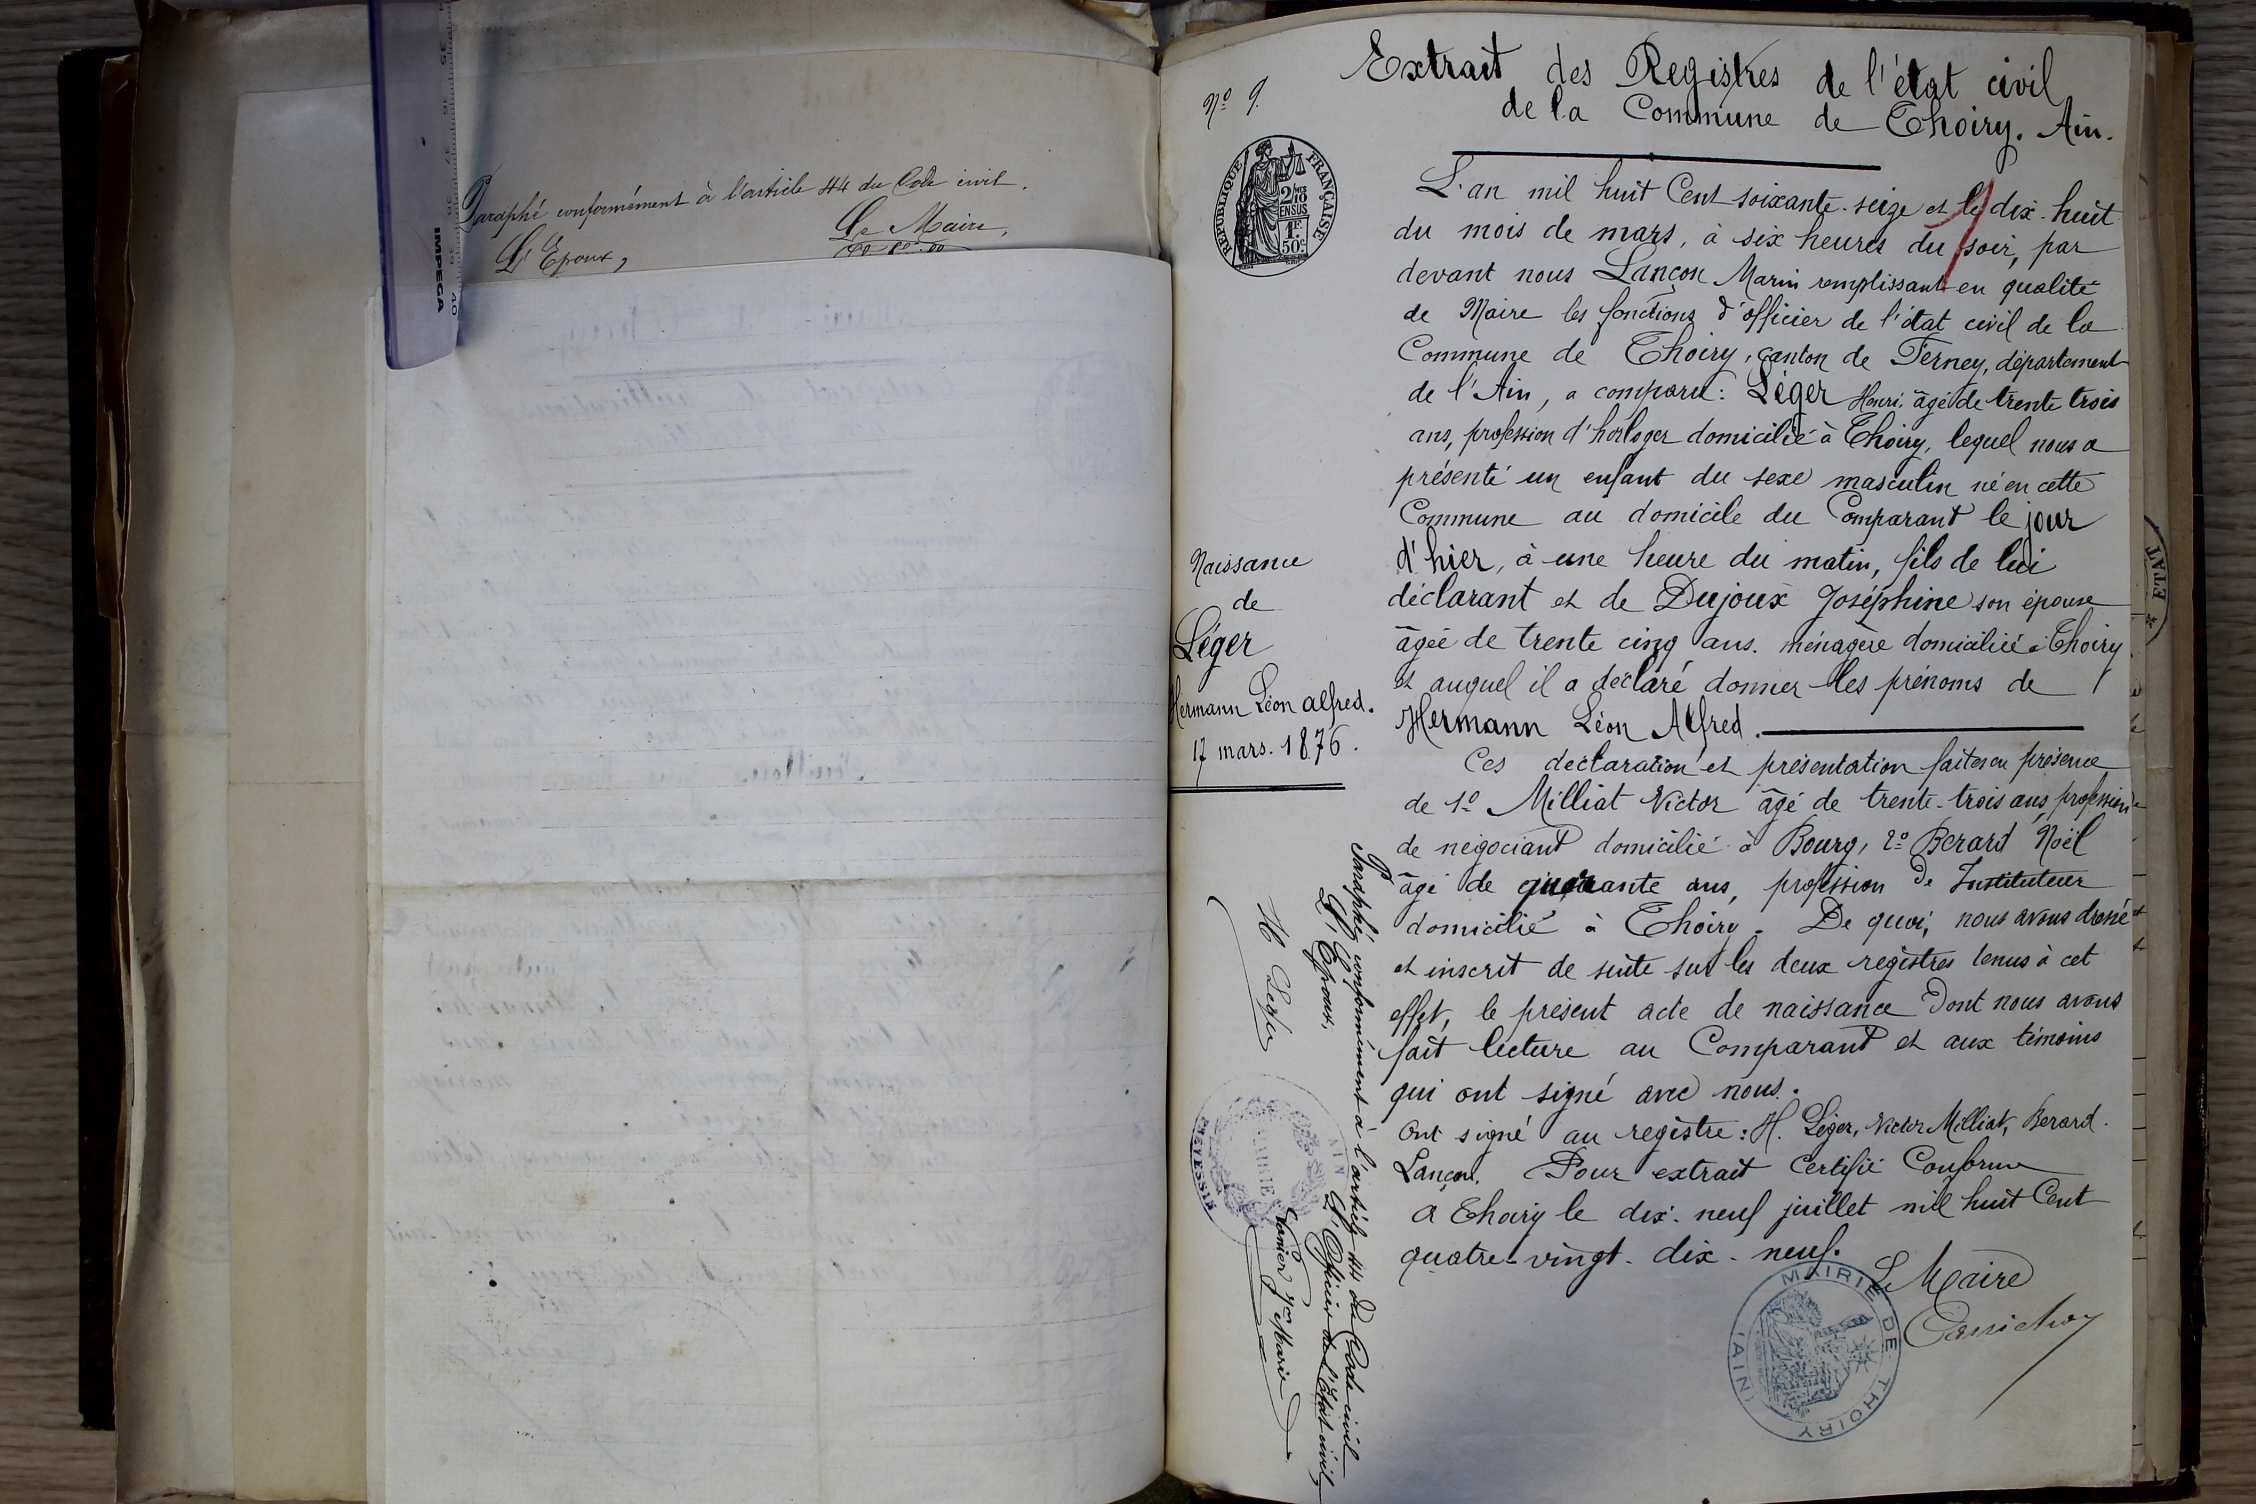 35
36
37
38
39
40
IMPEGA
Paraphé conformément à l'article 44 du Code civil.
Le Maire,
L'Epoux,
Extrait des Registres de l'état civil
de la Commune de Thoiry. Ain.
Nº 9.
REPUBLIQUE FRANÇAISE
2/10
EN SUS
1F.
50c.
L'an mil huit Cent soixante-seize et le dix-huit
du mois de mars, à six heures du soir, par
devant nous Lançon Marin remplissant en qualité
de Maire les fonctions d'officier de l'état civil de la
Commune de Thoiry, canton de Ferney, département
de l'Ain, a comparu: Léger Henri, âgé de trente trois
ans, profession d'horloger domicilié à Thoiry, lequel nous a
présenté un enfant du sexe masculin né en cette
Commune au domicile du Comparant le jour
d'hier, à une heure du matin, fils de lui
déclarant et de Dujoux Joséphine son épouse
âgée de trente cinq ans. ménagère domiciliée à Thoiry
et auquel il a déclaré donner les prénoms de
Hermann Léon Alfred.
Ces déclaration et présentation faites en présence
de 1º Milliat Victor âgé de trente-trois ans, profession
de négociant domicilié à Bourg, 2º Berard Noël
âgé de quarante ans, profession de Instituteur
domicilié à Thoiry. De quoi, nous avons dressé
et inscrit de suite sur les deux registres tenus à cet
effet, le présent acte de naissance dont nous avons
fait lecture au Comparant et aux témoins
qui ont signé avec nous.
Ont signé au registre: H. Léger, Victor Milliat, Berard.
Lançon. Pour extrait Certifié Conforme
A Thoiry le dix-neuf juillet mil huit Cent
quatre-vingt-dix-neuf.
Le Maire
MAIRIE DE THOIRY
(AIN)
Naissance
de
Léger
Hermann Léon Alfred.
17 mars. 1876.
Paraphé conformément à l'article 44 du Code civil
L'Epoux, L'Officier de l'Etat civil,
H Léger
MAIRIE
AIN
ETAT